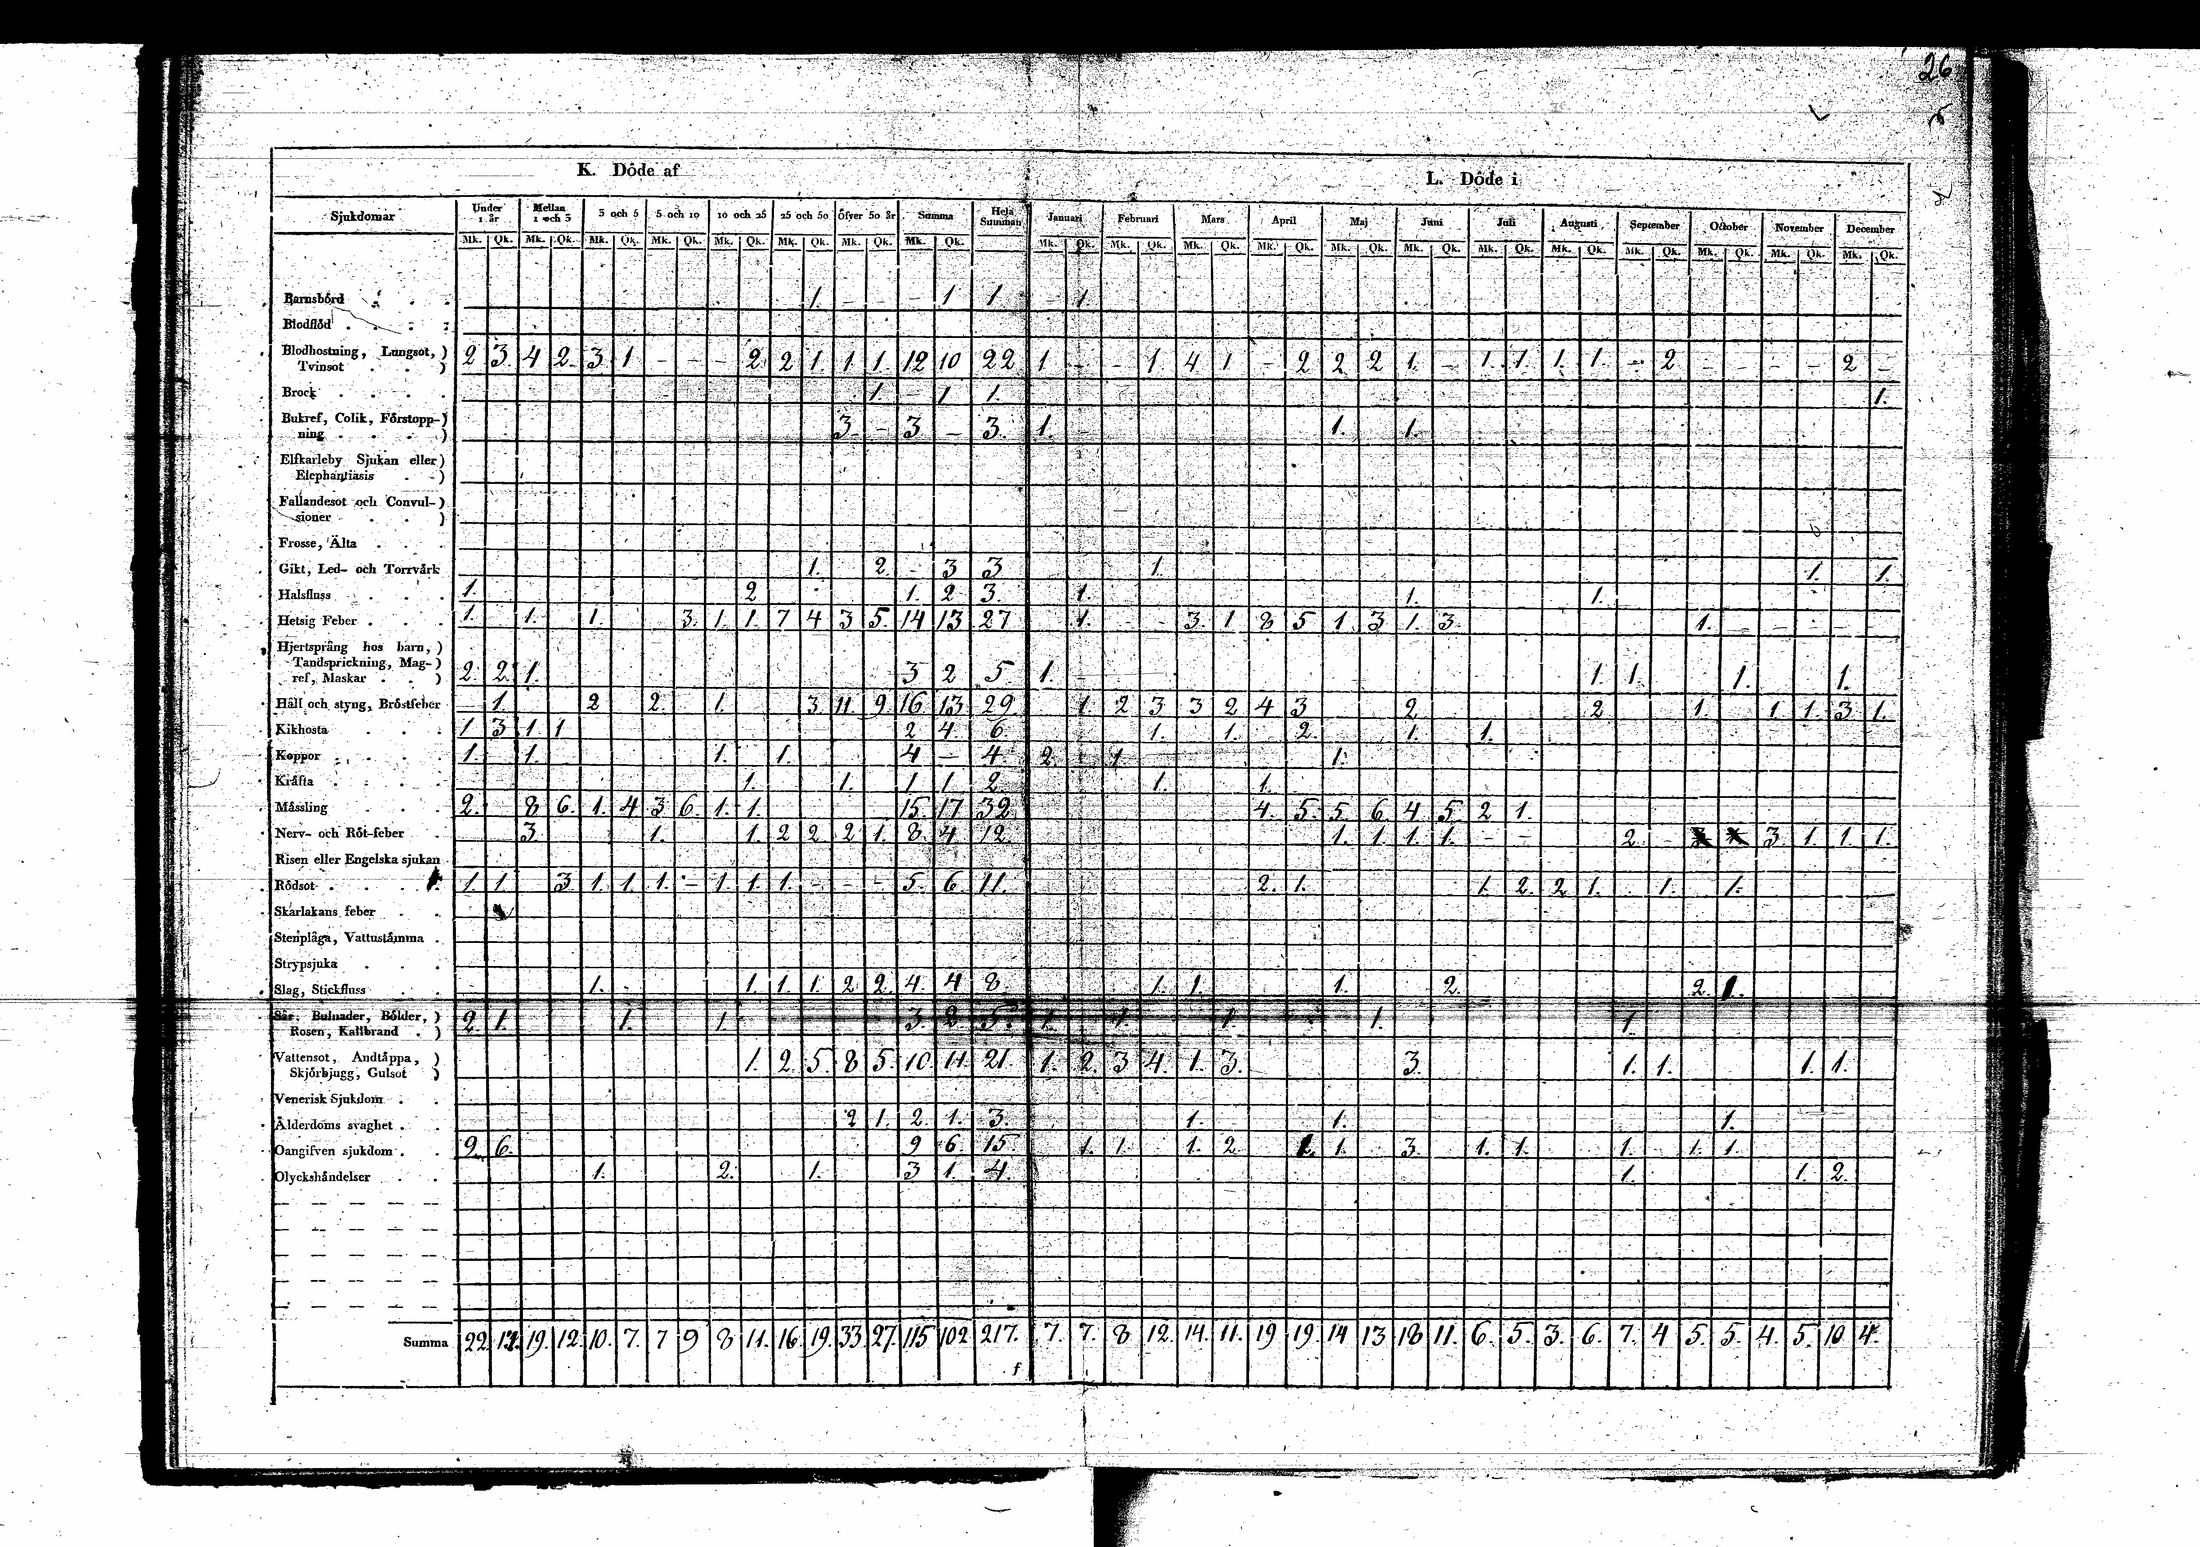 26
K. Döde af
L. Döde i
Sjukdomar Under 1 år Mellan 1 och 3 3 och 5 5 och 10 10 och 25 25 och 50 öfver 50 år Summa Hela Summan Januari Februari Mars April Maj Juni Juli Augusti September October November December
Mk. Qk. Mk. Qk. Mk. Qk. Mk. Qk. Mk. Qk. Mk. Qk. Mk. Qk. Mk. Qk. Mk. Qk. Mk. Qk. Mk. Qk. Mk. Qk. Mk. Qk. Mk. Qk. Mk. Qk. Mk. Qk. Mk. Qk. Mk. Qk. Mk. Qk. Mk. Qk.
Barnsbörd 1. – – – 1 1 – 1.
Blodflöd
Blodhostning, Lungsot,)
Tvinsot ) 2 3. 4 2. 3. 1 – – – 2. 2 1. 1 1. 12 10 22 1 – – 1. 4 1 – 2 2. 2 1. – 1. 1. 1. 1. – 2 – – – – 2 –
Brock 1. – 1 1. 1.
Bukref, Colik, Förstopp-)
ning ) 3. – 3 – 3. 1. – 1. 1.
Elfkarleby Sjukan eller)
Elephantiasis )
Fallandesot och Convul-)
sioner )
Frosse, Älta
Gikt, Led- och Torrvärk 1. 2. – 3 3 1. 1. 1.
Halsfluss 1. 2 1. 2 3. 1. 1. 1.
Hetsig Feber 1. 1. 1. 3. 1. 1. 7 4 3 5. 14 13 27 1. – – 3. 1 8 5 1. 3 1. 3. 1. – – – –
Hjertsprång hos barn,)
Tandsprickning, Mag-)
ref, Maskar ) 2. 2. 1. 3 2 5. 1. 1. 1. 1. 1.
Håll och styng, Bröstfeber – 1. 2 2. 1. 3. 11. 9 16. 13 29. 1. 2 3 3 2 4 3 2 2 1. 1 1. 3 1.
Kikhosta 1 3 1 1 2 4. 6 1. 1. 2. 1. 1.
Koppor 1. 1. 1. 1. 4 – 4 2. 1 1.
Kräfta 1. 1. 1 1. 2 1. 1.
Mässling 2. 8 6. 1. 4 3 6. 1. 1. 15. 17 32 4. 5. 5. 6 4 5. 2 1.
Nerv- och Röt-feber 3. 1. 1. 2 2. 2 1. 8. 4. 12. 1. 1. 1. 1. – – 2. – 3. 1. 1. 1.
Risen eller Engelska sjukan
Rödsot 1. 1. 3. 1. 1. 1. – 1. 1. 1. – – – 5. 6 11. 2. 1. 1. 2. 2 1. 1. 1.
Skarlakans feber
Stenplåga, Vattustämma
Strypsjuka
Slag, Stickfluss 1. 1. 1. 1. 2. 2. 4. 4 8. 1. 1. 1. 2. 2. 1.
Sår, Bulnader, Bölder,)
Rosen, Kallbrand ) 2. 1. 1. 1. 3. 2. 5. 1. 1. 1. 1. 1.
Vattensot, Andtäppa, )
Skjörbjugg, Gulsot ) 1. 2. 5. 8 5. 10. 11. 21. 1. 2. 3 4. 1. 3. 3. 1. 1. 1. 1.
Venerisk Sjukdom
Ålderdoms svaghet 2 1. 2. 1. 3. 1. 1. 1.
Oangifven sjukdom 9 6. 9 6. 15. 1. 1. 1. 2. 1. 1. 3. 1. 1. 1. 1. 1.
Olyckshändelser 1. 2. 1. 3 1. 4. 1. 1. 2.
Summa 22. 17. 19. 12. 10. 7. 7 9 8 11. 16. 19. 33. 27. 115 102 217. 7. 7. 8 12. 14. 11. 19 19. 14 13 18 11. 6. 5. 3. 6. 7. 4 5. 5. 4. 5. 10 4.